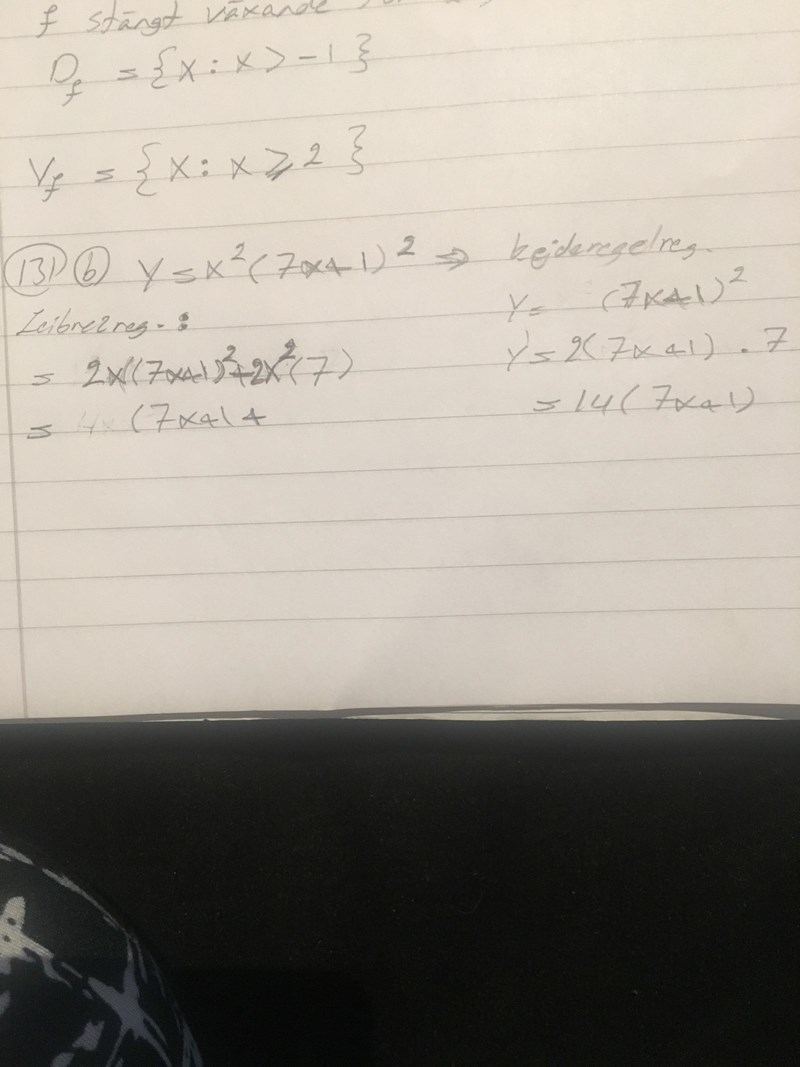 f stängt växande
D_f = {x : x > -1}
V_f = {x : x ≥ 2}
131 b y = x²(7x+1)² ⇒ kejderegelreg.
Leibnezreg. :
= 2x(7x+1)² + 2x²(7)
= 4x (7x+1 +
y = (7x+1)²
y' = 2(7x+1) · 7
= 14(7x+1)